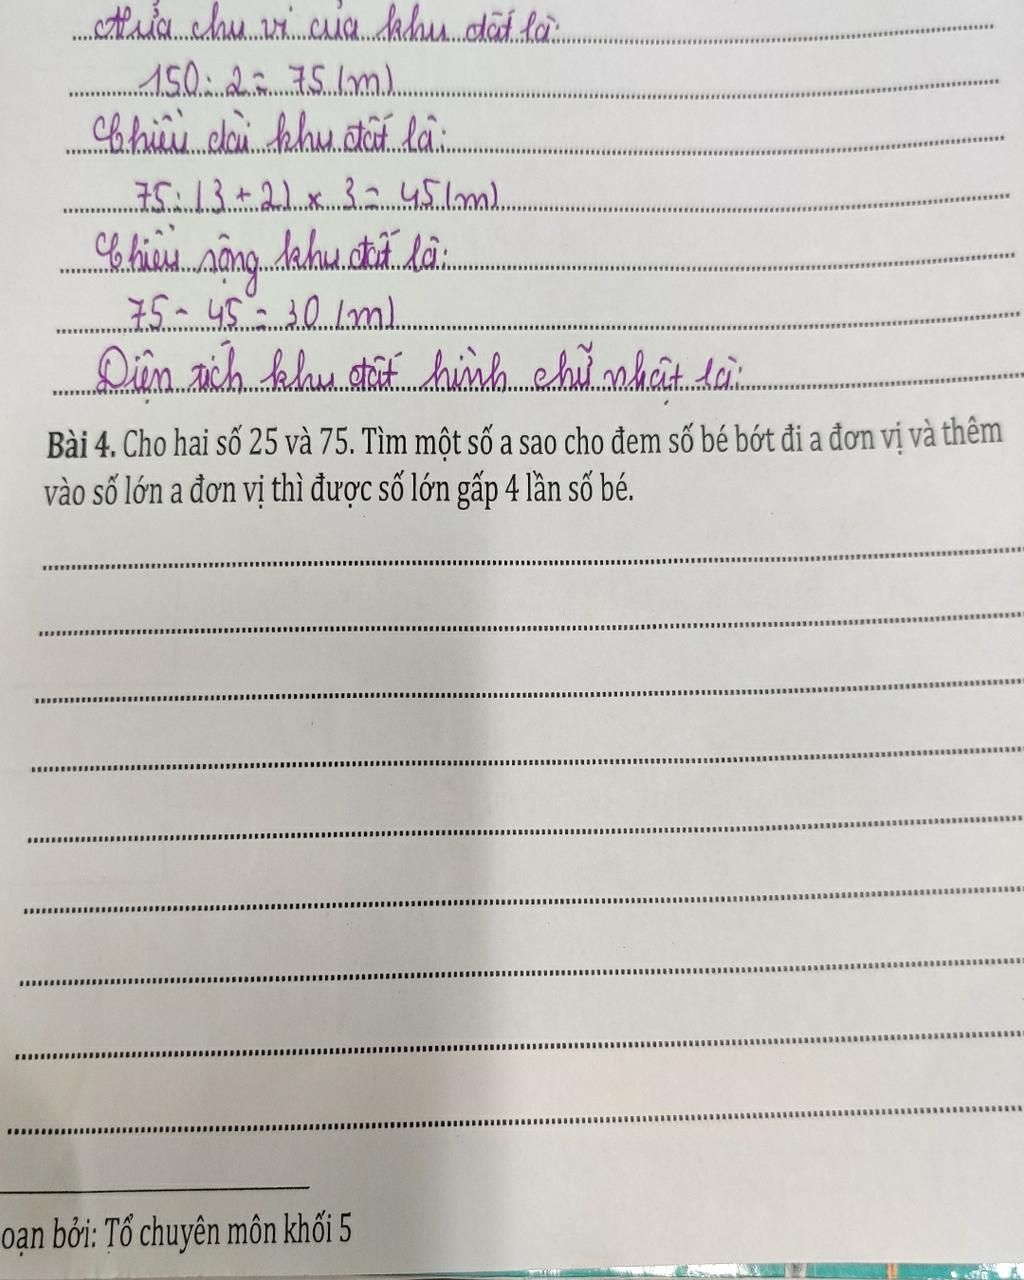 Nửa chu vi của khu đất là:
150 : 2 = 75 (m)
Chiều dài khu đất là:
75 : (3 + 2) × 3 = 45 (m)
Chiều rộng khu đất là:
75 - 45 = 30 (m)
Diện tích khu đất hình chữ nhật là:
Bài 4. Cho hai số 25 và 75. Tìm một số a sao cho đem số bé bớt đi a đơn vị và thêm
vào số lớn a đơn vị thì được số lớn gấp 4 lần số bé.
oạn bởi: Tổ chuyên môn khối 5